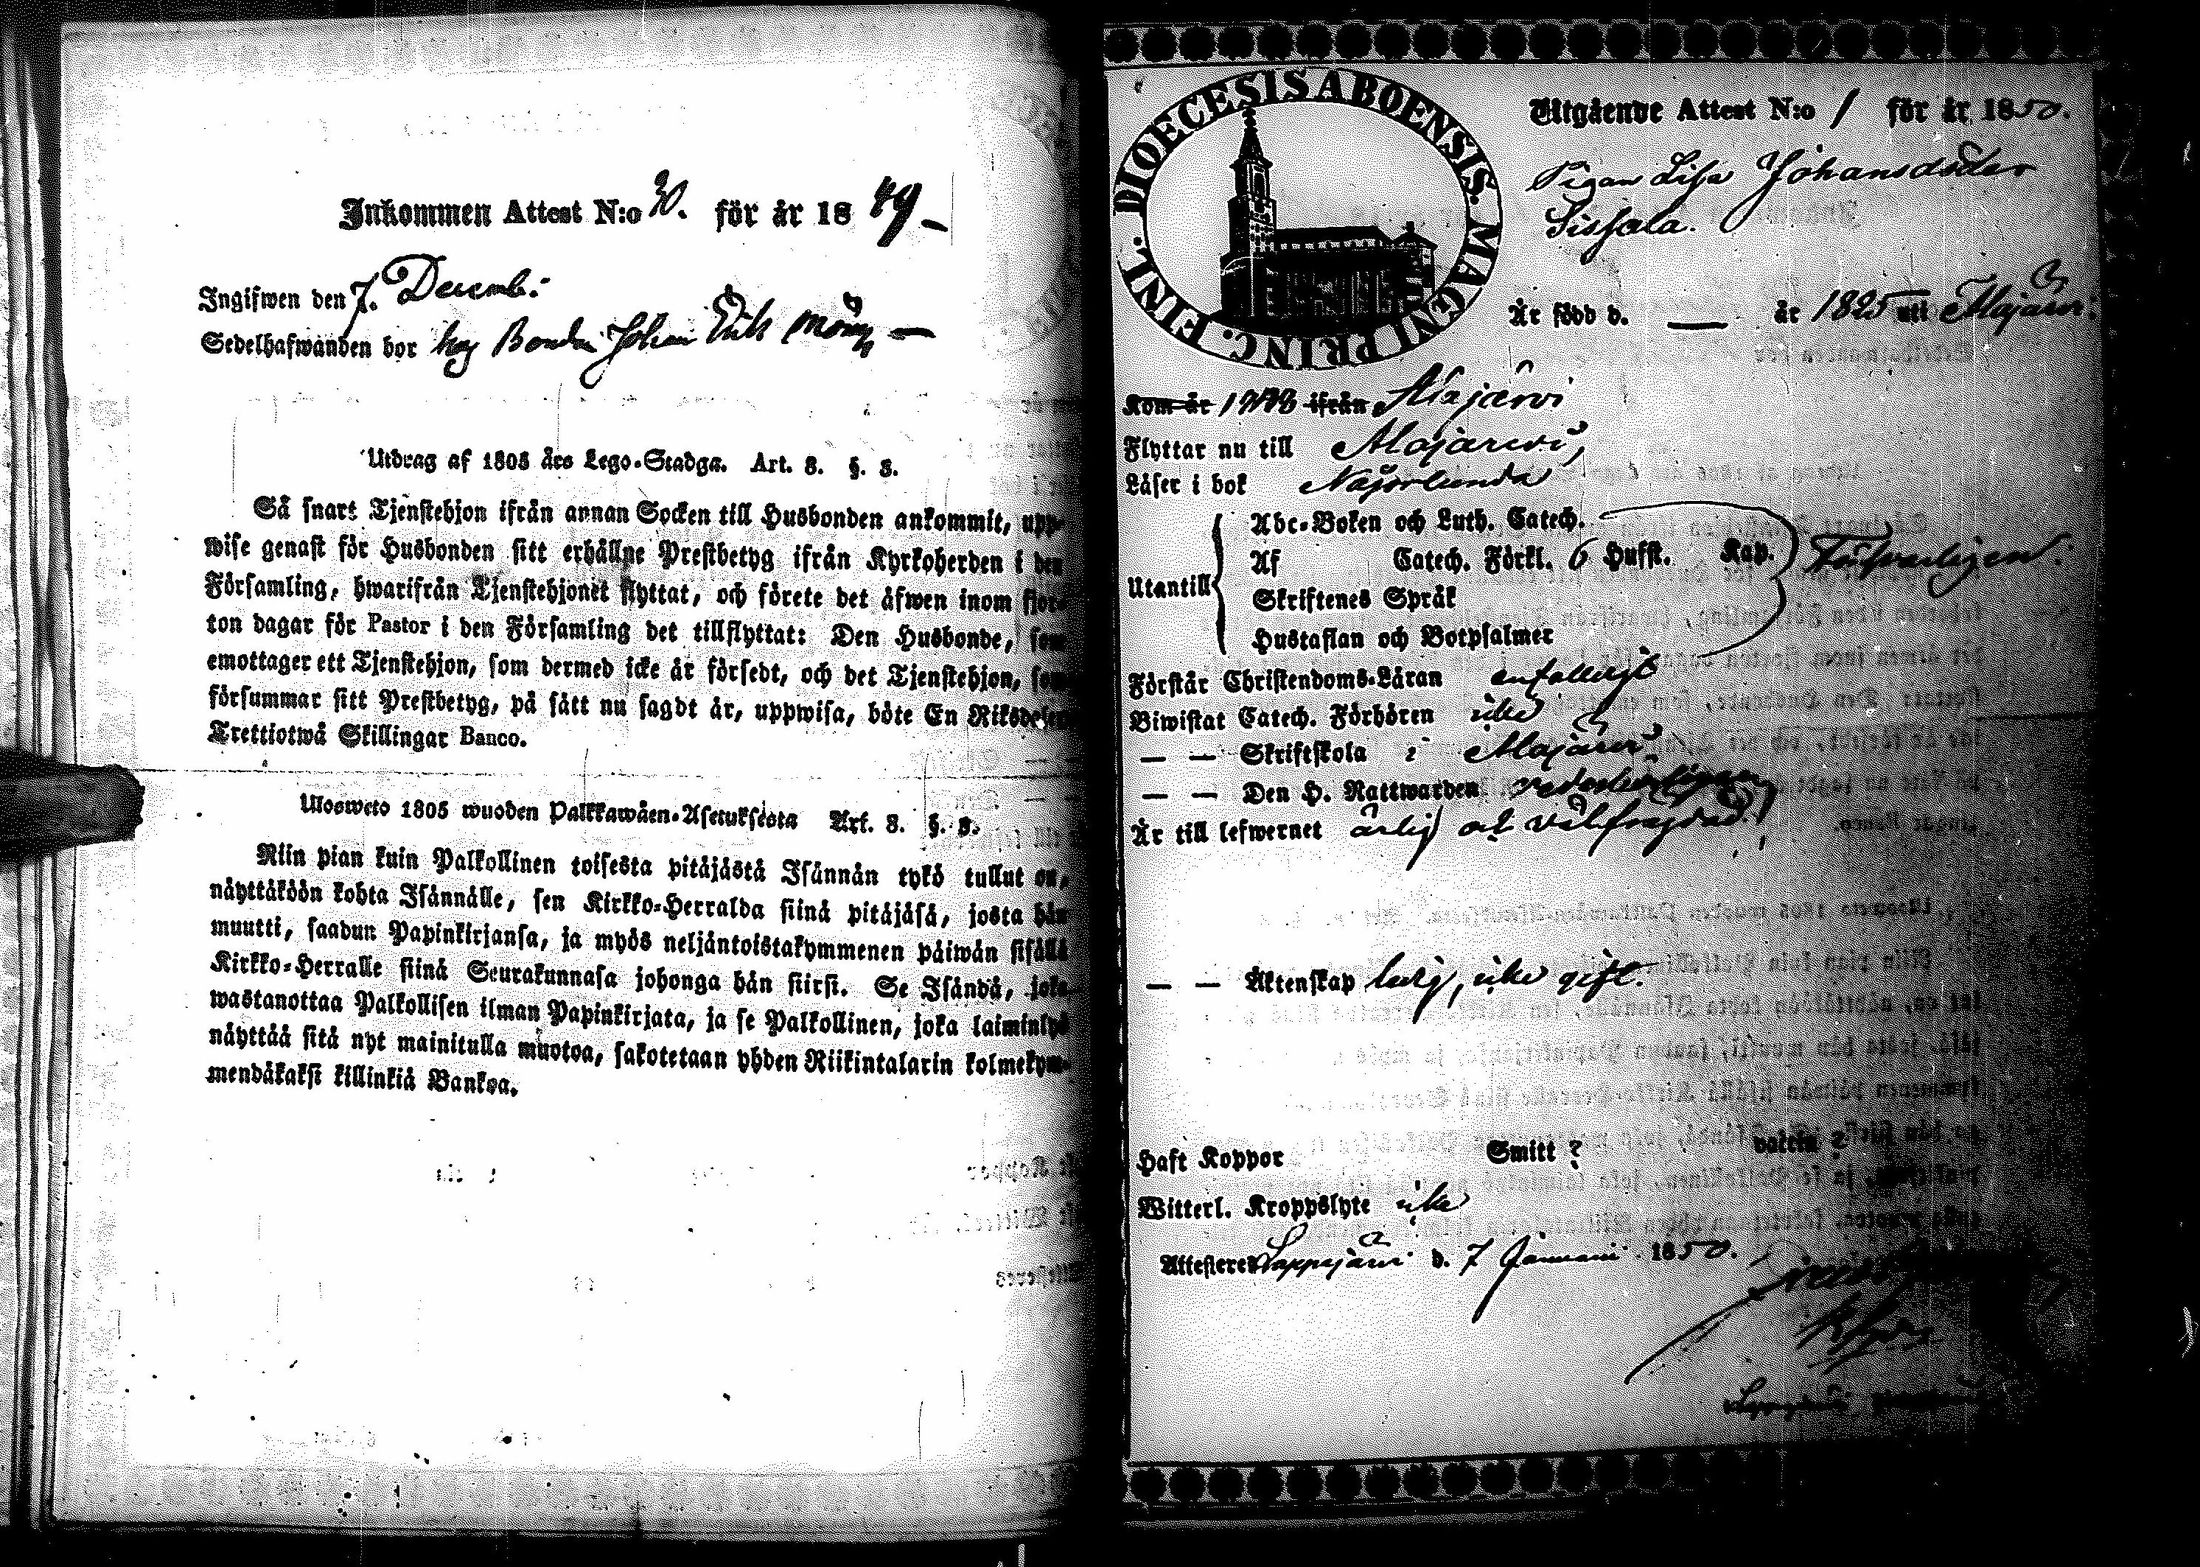 Inkommen Attest N:o 30. för år 1849
Ingifwen den 7. Decemb:
Sedelhafwanden bor hos Bonden Johan Erik
Utdrag af 1805 års Lego-Stadga. Art. 3. §. 3.
Så snart Tjenstehjon ifrån annan Socken till Husbonden ankommit, upp-
wise genast för Husbonden sitt erhållne Prestbetyg ifrån Kyrkoherden i den
Församling, hwarifrån Tjenstehjonet flyttat, och förete det äfwen inom fjor-
ton dagar för Pastor i den Församling det tillflyttat: Den Husbonde, som
emottager ett Tjenstehjon, som dermed icke är försedt, och det Tjenstehjon, som
försummar sitt Prestbetyg, på sätt nu sagdt är, uppwisa, böte En Riksdaler
Trettiotwå Skillingar Banco.
Ulosweto 1805 wuoden Palkkawäen-Asetuksesta Art. 3. §. 3.
Niin pian kuin Palkollinen toisesta pitäjästä Isännän tykö tullut on,
näyttäköön kohta Isännälle, sen Kirkko-Herralda siinä pitäjäsä, josta hän
muutti, saadun Papinkirjansa, ja myös neljäntoistakymmenen päiwän sisällä
Kirkko-Herralle siinä Seurakunnasa johonga hän siirsi. Se Isändä, joka
wastanottaa Palkollisen ilman Papinkirjata, ja se Palkollinen, joka laiminlyö
näyttää sitä nyt mainitulla muotoa, sakotetaan yhden Riikintalarin kolmekym-
mendäkaksi killinkiä Bankoa.
DIOECESIS ABOENSIS. MAGNI PRINC. FINL.
Utgående Attest N:o 1 för år 1850.
Pigan Lisa Johansdoter
Sissala.
Är född d. — år 1825 uti Alajärvi
Kom år 1848 ifrån Alajärvi
Flyttar nu till Alajärvi,
Läser i bok Någorlunda
Utantill
Abc-Boken och Luth. Catech.
Af Catech. Förkl. 6 Hufst. Kap. Försvarligen.
Skriftenes Språk
Hustaflan och Botpsalmer
Förstår Christendoms-Läran enfalligt
Biwistat Catech. Förhören icke
— — Skriftskola i Alajärvi
— — Den H. Nattwarden vederbörligen
Är till lefwernet ärlig och välfrägdad,
— — Äktenskap ledig, icke gift.
Haft Koppor Smitt? vaccin?
Witterl. Kroppslyte icke
Attesteres Lappajärvi d. 7 Januari 1850.